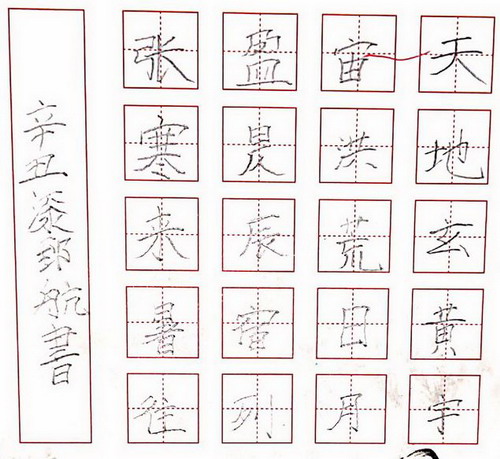 天地玄黄宇
宙洪荒日月
盈昃辰宿列
张寒来暑往
辛丑漆航書